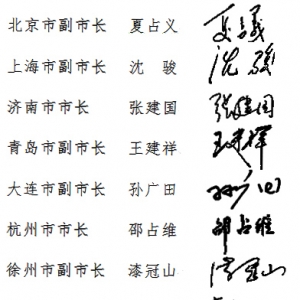 北京市副市长 夏占义 夏占義
上海市副市长 沈骏 沈骏
济南市市长 张建国 张建国
青岛市副市长 王建祥 王建祥
大连市副市长 孙广田 孙广田
杭州市市长 邵占维 邵占维
徐州市副市长 漆冠山 漆冠山